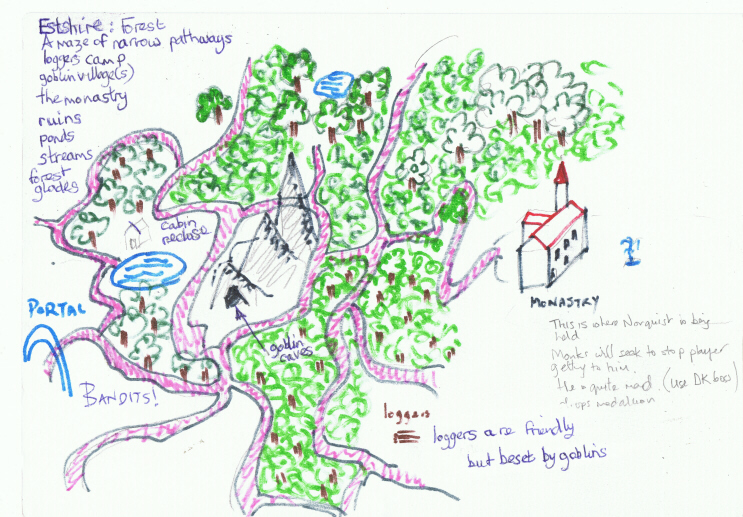 Estshire: Forest
A maze of narrow pathways
loggers camp
goblin village(s)
the monastry
ruins
ponds
streams
forest
glades
cabin
recluse
PORTAL
BANDITS!
goblin
caves
MONASTRY
This is where Norquist is being
held
Monks will seek to stop player
getting to him.
He is quite mad. (use DK boo)
medallion
loggers
loggers are friendly
but beset by goblins